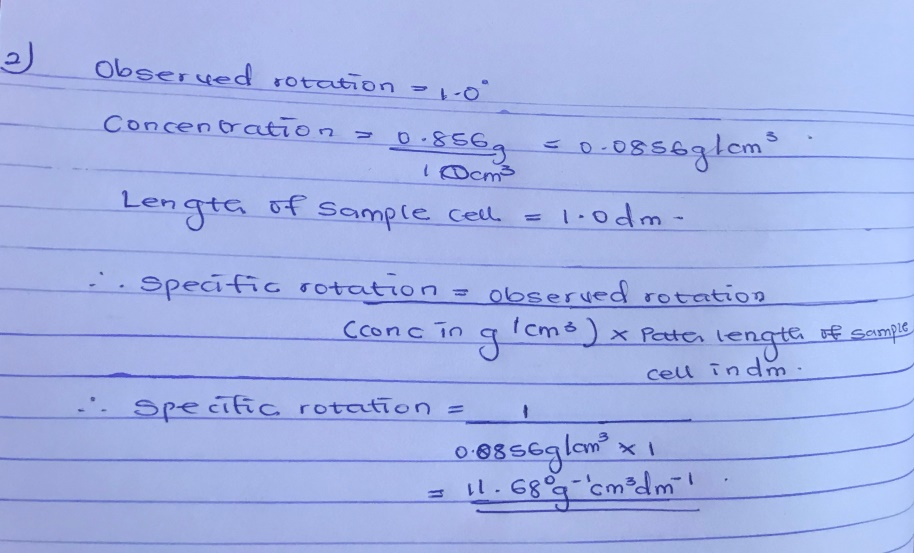 2) Observed rotation = 1.0°
Concentration = 0.856g / 10cm³ = 0.0856g/cm³.
Length of sample cell = 1.0dm.
∴ Specific rotation = observed rotation
(conc in g/cm³) x Path length of sample
cell in dm.
∴ Specific rotation = 1
0.0856g/cm³ x 1
= 11.68°g⁻¹cm³dm⁻¹.